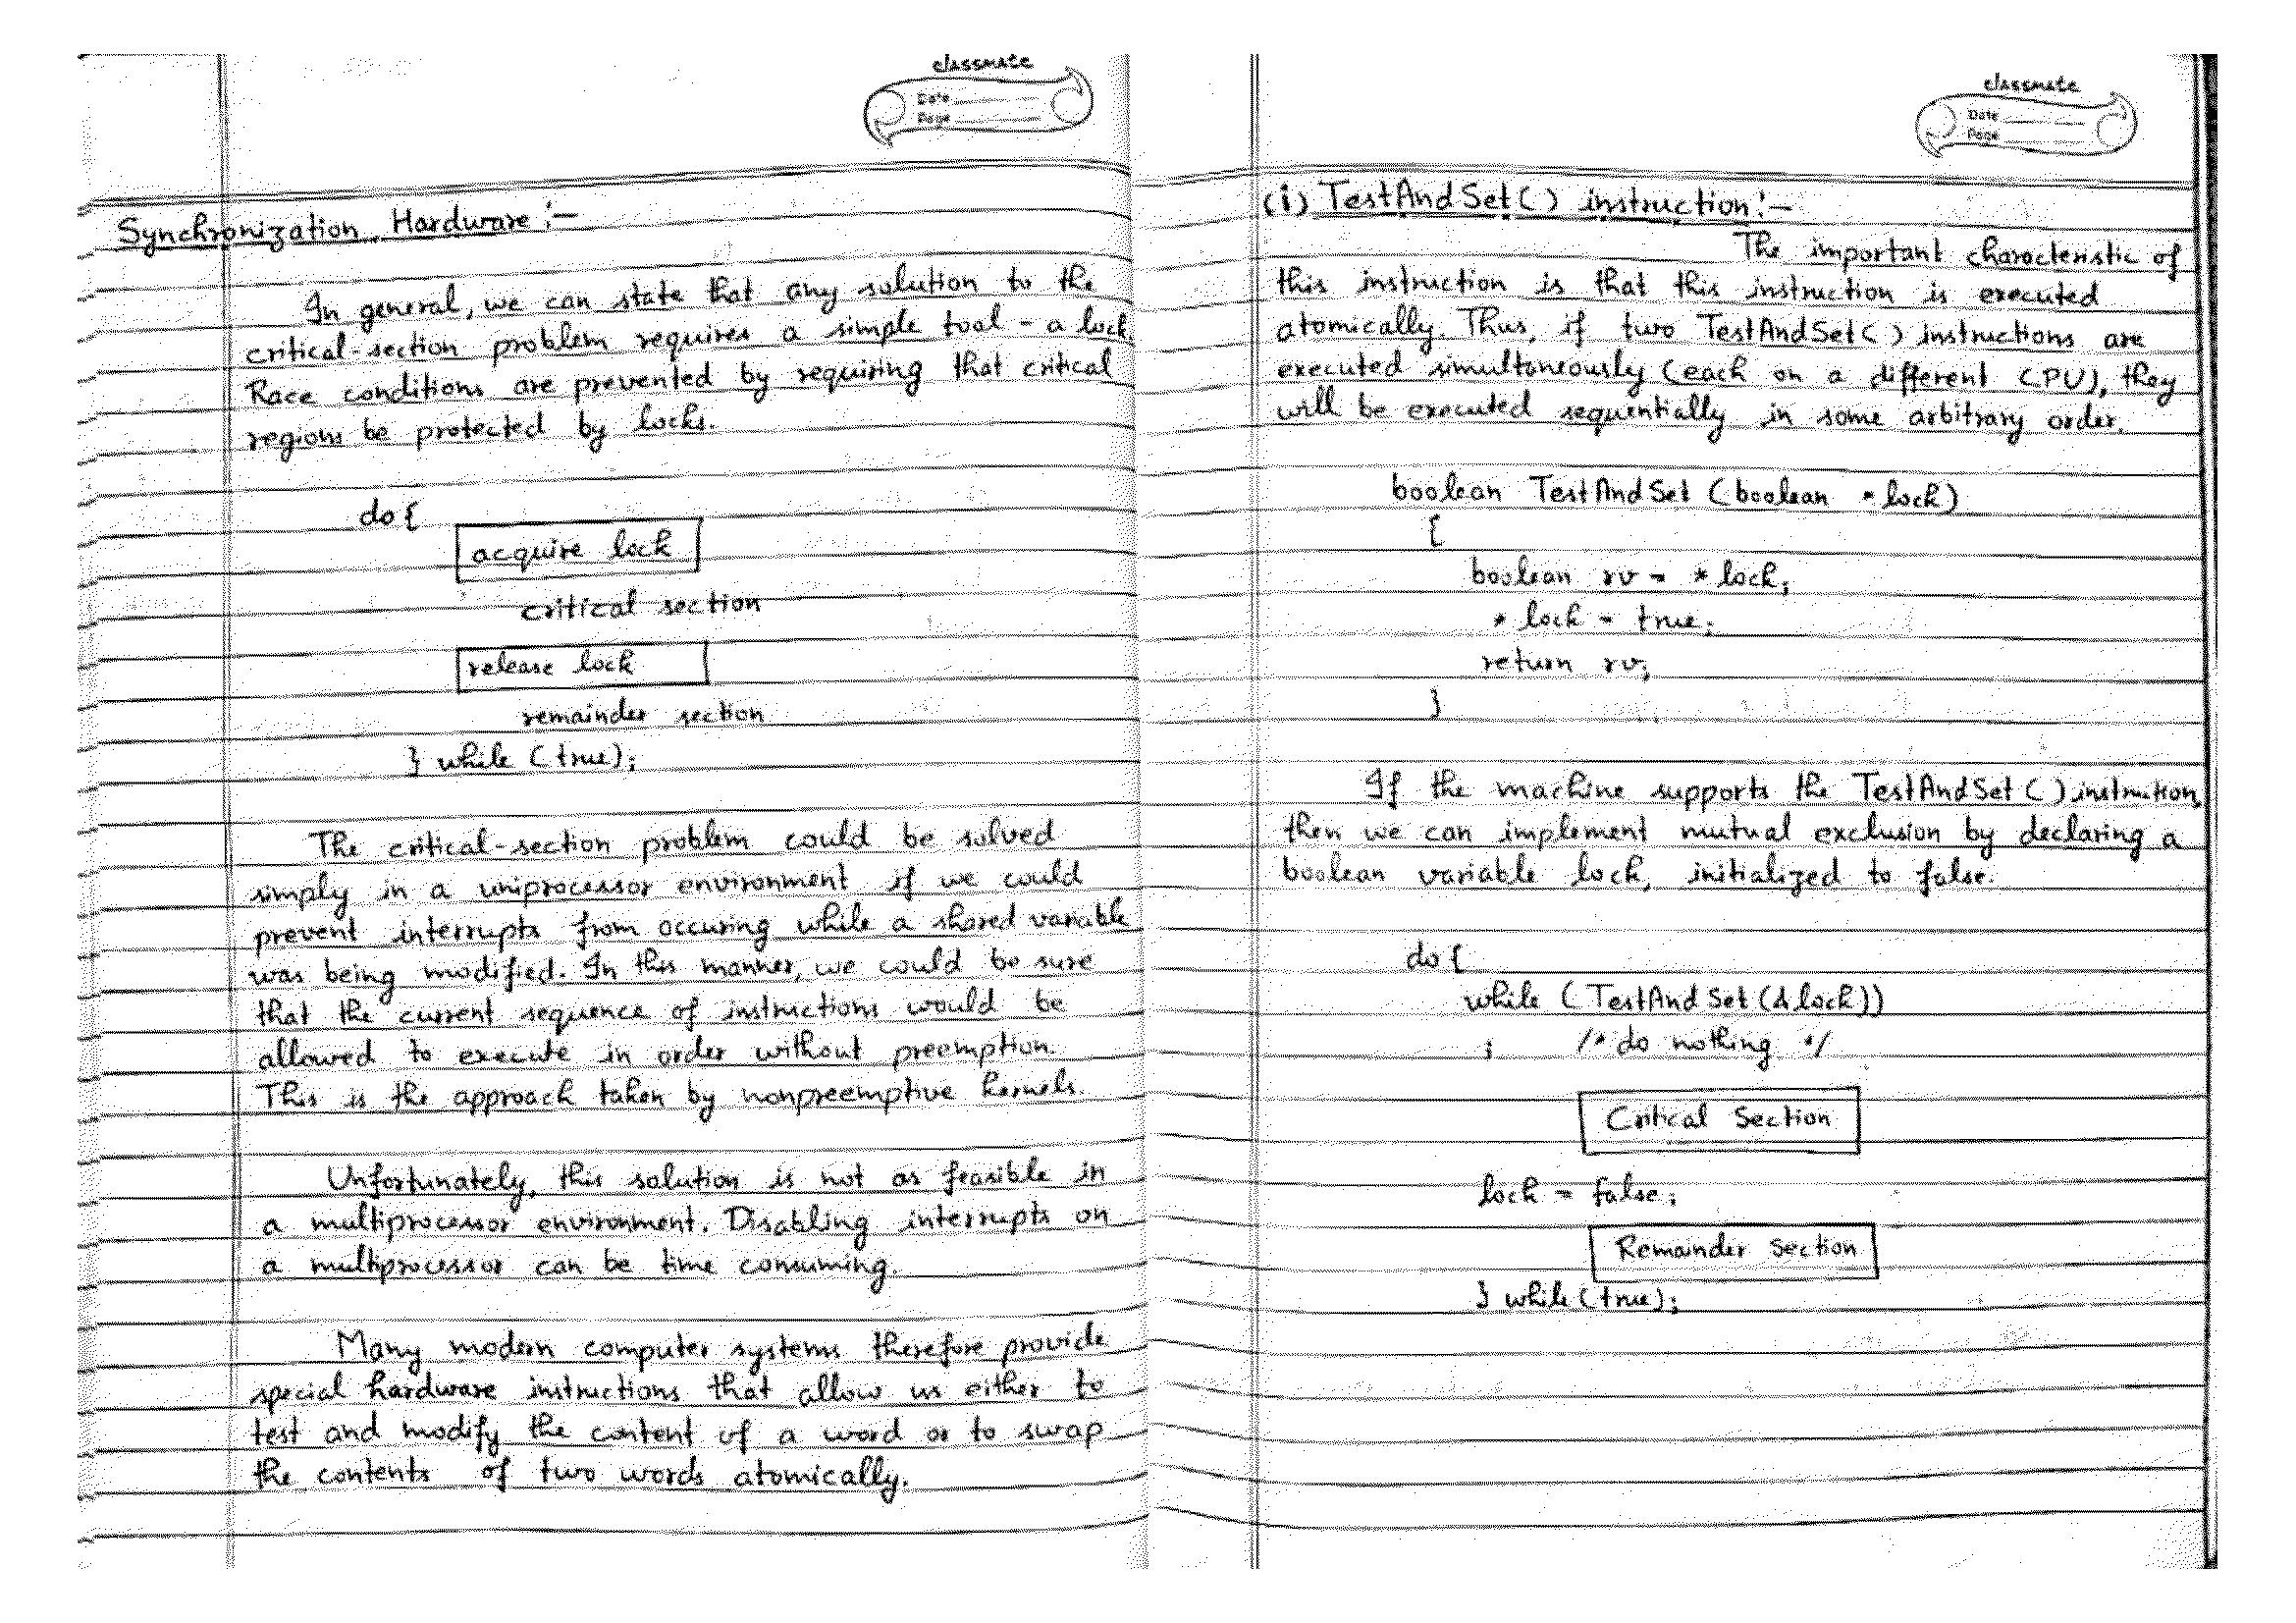 classmate
Date
Page
Synchronization Hardware :-
In general, we can state that any solution to the
critical-section problem requires a simple tool - a lock.
Race conditions are prevented by requiring that critical
regions be protected by locks.
do {
acquire lock
critical section
release lock
remainder section
} while (true);
The critical-section problem could be solved
simply in a uniprocessor environment if we could
prevent interrupts from occuring while a shared variable
was being modified. In this manner, we could be sure
that the current sequence of instructions would be
allowed to execute in order without preemption.
This is the approach taken by nonpreemptive kernels.
Unfortunately, this solution is not as feasible in
a multiprocessor environment. Disabling interrupts on
a multiprocessor can be time consuming.
Many modern computer systems therefore provide
special hardware instructions that allow us either to
test and modify the content of a word or to swap
the contents of two words atomically.
classmate
Date
Page
(i) TestAndSet() instruction :-
The important characteristic of
this instruction is that this instruction is executed
atomically. Thus, if two TestAndSet() instructions are
executed simultaneously (each on a different CPU), they
will be executed sequentially in some arbitrary order.
boolean TestAndSet (boolean *lock)
{
boolean rv = *lock;
*lock = true;
return rv;
}
If the machine supports the TestAndSet() instruction,
then we can implement mutual exclusion by declaring a
boolean variable lock, initialized to false.
do {
while (TestAndSet(&lock))
; /* do nothing */
Critical Section
lock = false;
Remainder Section
} while (true);